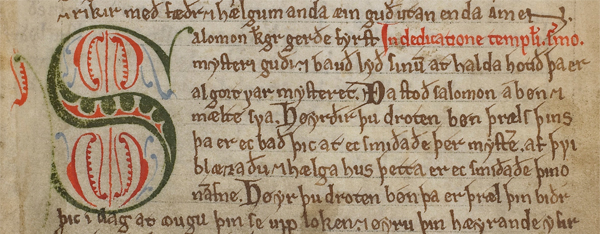 ok rikir með fæðr ok hælgum anda æin guð utan enda amen
Salomon kgr gerðe fyrst In dedicatione templi. sermo.
mysteri guði ⁊ bauð lyð sinū at halda hotið þa er
algort var mysteret. Þa stoð salomon a bøn ⁊
mælte sva. Høyrðu þu droten bøn þræls þins
þa er ec bað þic at ec smiðaðe þer myste. at þu
blæzaðu ⁊ hælga hus þetta er ec smiðaðe þino
nāfne. Høyr þu droten bøn þa er þræl þin biðr
þic i dag at ougu þin se upp loken ⁊ øyru þin høyrande yfir